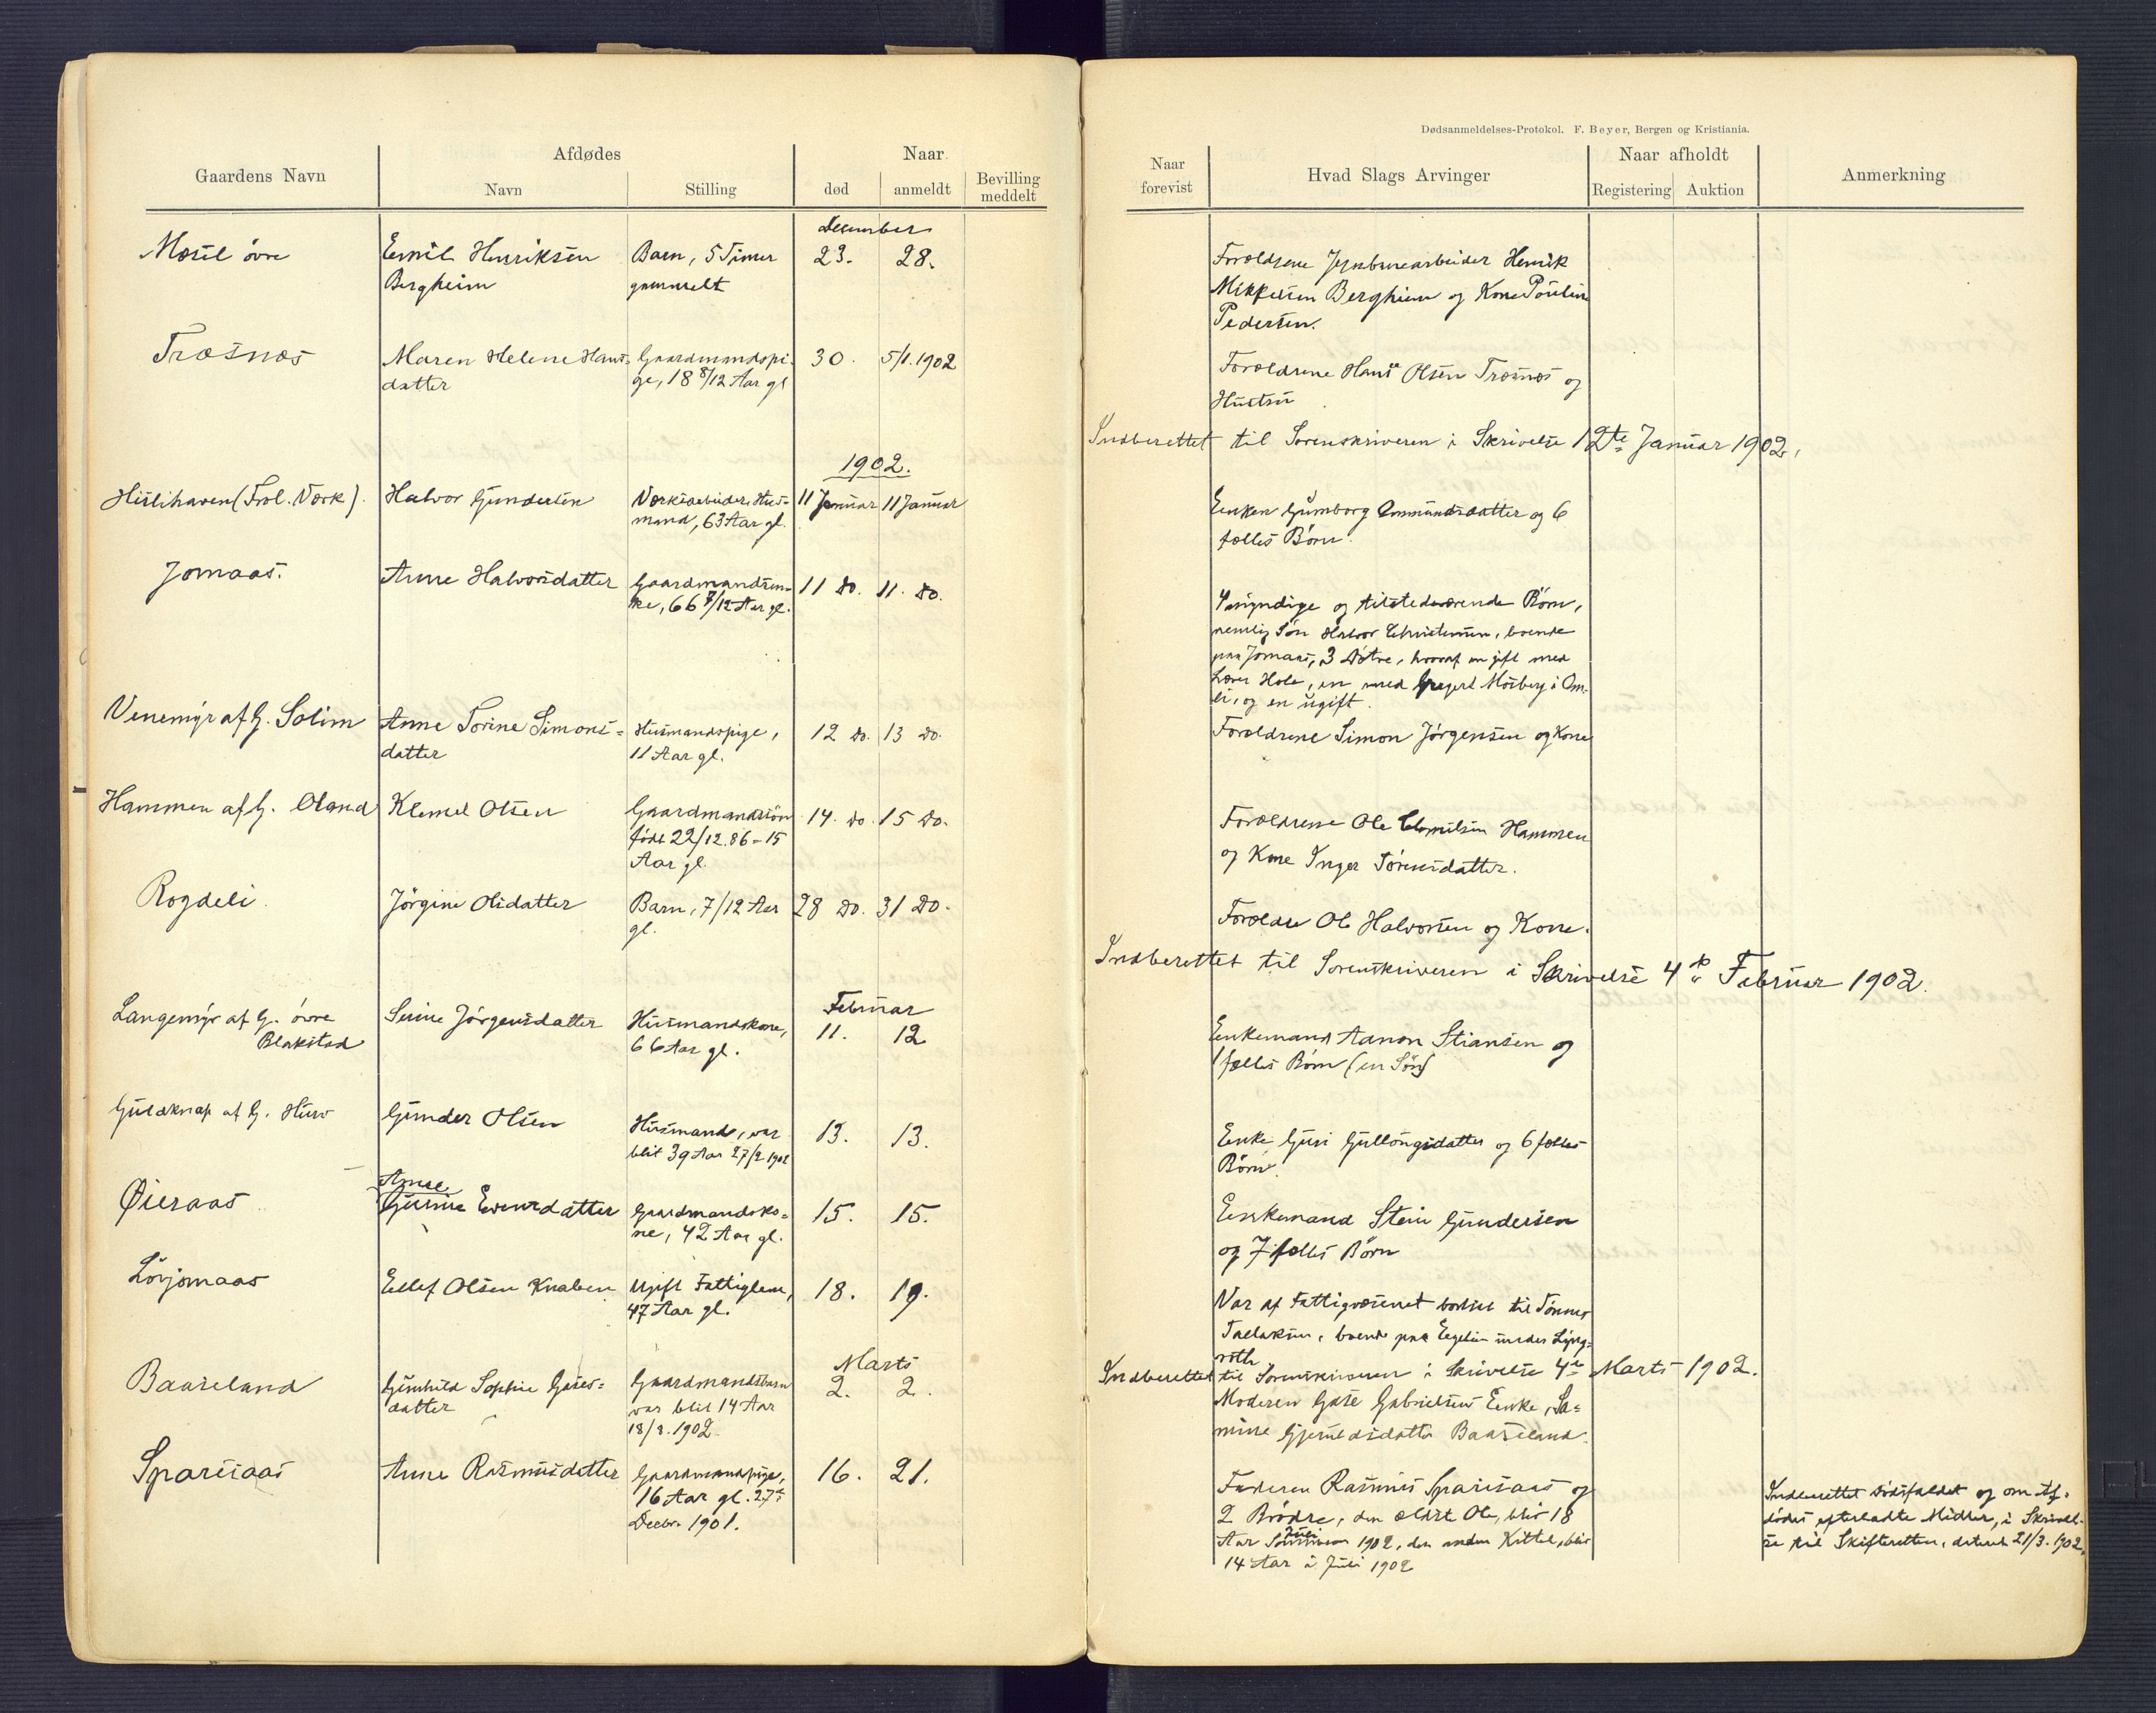 Dødsanmeldelses-Protokol. F. Beyer, Bergen og Kristiania.
Gaardens Navn
Afdødes
Navn
Stilling
Naar
død
anmeldt
Bevilling
meddelt
Naar
forevist
Hvad Slags Arvinger
Naar afholdt
Registering
Auktion
Anmerkning
December
Mæsel øvre
Emil Henriksen
Bergheim
Barn, 5 Timer
gammelt
23.
28.
Forældrene Jernbanearbeider Henrik
Mikkelsen Bergheim og Kone Pouline
Pedersen.
Træsnæs
Maren Helene Hans-
datter
Gaardmandspi-
ge, 18 8/12 Aar gl
30.
5/1.1902
Forældrene Hans Olsen Træsnæs og
Hustru
Indberettet til Sorenskriveren i Skrivelse 12te Januar 1902.
1902.
Hislihaven (Frol. Værk).
Halvor Gundersen
Værksarbeider, Hus-
mand, 63 Aar gl.
11 Januar
11 Januar
Enken Gumborg Ommundsdatter og 6
fælles Børn.
Jomaas.
Anne Halvorsdatter
Gaardmandsen-
ke, 66 7/12 Aar gl.
11 do.
11. do.
4 myndige og tilstedeværende Børn,
nemlig Søn Halvor Christensen, boende
paa Jomaas, 3 Døtre, hvoraf en gift med
Lærer Hole, en med Gregert Mosberg i Om-
li, og en ugift.
Venemyr af G. Solim
Anne Torine Simons-
datter
Husmandspige,
11 Aar gl.
12 do.
13 do.
Forældrene Simon Jørgensen og Kone
Hammen af G. Oland
Klemet Olsen
Gaardmandssøn
født 22/12.86 - 15
Aar gl.
14. do.
15 do.
Forældrene Ole Clemetsen Hammen
og Kone Inger Sørensdatter.
Rogdeli
Jørgine Olsdatter
Barn, 7/12 Aar
gl.
28 do.
31 do.
Forældre Ole Halvorsen og Kone.
Indberettet til Sorenskriveren i Skrivelse 4de Februar 1902.
Februar
Langemyr af G. øvre
Blakstad
Serine Jørgensdatter
Husmandskone,
66 Aar gl.
11.
12
Enkemand Aanon Stiansen og
1 fælles Børn (en Søn)
Guldknap af G. Huso
Gunder Olsen
Husmand, var
blit 39 Aar 27/2 1902
13.
13.
Enke Guri Gullongsdatter og 6 fælles
Børn.
Øieraas
Anne
Gurine Evensdatter
Gaardmandsko-
ne, 42 Aar gl.
15.
15.
Enkemand Stein Gundersen
og 7 fælles Børn
Løvjomaas
Ellef Olsen Knaben
Ugift Fattiglem,
47 Aar gl.
18.
19.
Var af Fattigvæsenet bortsat til Tønnes
Tallaksen, boende paa Eegelien under Ljøng-
røth
Indberettet til Sorenskriveren i Skrivelse 4de Marts 1902.
Marts
Baaseland
Gunhild Sophie Gases-
datter
Gaardmandsbarn
var blit 14 Aar
18/8.1902
2.
2.
Moderen Gase Gabrielsens Enke, Sa-
mine Gjeruldsdatter Baaseland.
Sparsaas
Anne Rasmusdatter
Gaardmandspige,
16 Aar gl. 27de
Decbr. 1901.
16.
21.
Faderen Rasmus Sparsaas og
2 Brødre, den ældste Ole, blir 18
Juli
Aar Sommeren 1902, den anden Kittel, blir
14 Aar i Juli 1902
Indberettet Dødsfaldet og om Af-
dødes efterladte Midler, i Skrivel-
se til Skifteretten, dateret 21/3.1902.